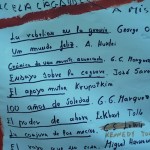 A MIS
La rebelion en la granja. George O
Un mundo feliz. A. Huxley
Crónica de una muerte anunciada. G.G. Marquez
Ensayo Sobre la ceguera. José Sara
El apoyo mutuo Kropotkin
100 años de Soledad G.G. Marquez
El poder de ahora. Eckhart Tolle
La conjura de los necios.
KENNEDY TOO
que no Miguel